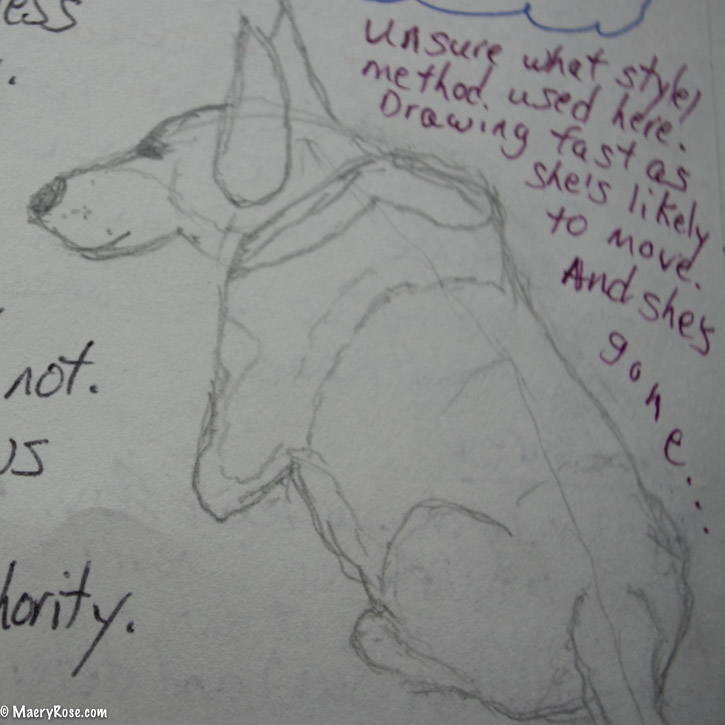 ess
.
Unsure what style/
method used here.
Drawing fast as
she's likely
to move.
And she's
gone...
not.
us
hority.
© MaeryRose.com